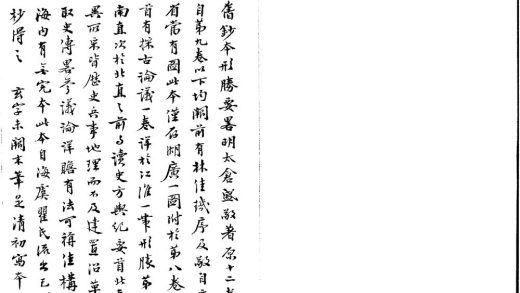 舊鈔本形勝要畧明太倉盛敬著原十二
自第九卷以下均闕前有林佳璣序及敬自
省當有圖此本僅存湖廣一圖附於第八卷
首有採古論議一卷詳於江淮一筆形勝第
南直次於北直之前与讀史方輿紀要首北
異所采皆歷史兵事地理而不及建置沿革
取史傳畧參議論詳贍有法可稱佳構
海内有無完本此本自海虞瞿氏流出已
抄得之 玄字未闕末筆是清初寫本